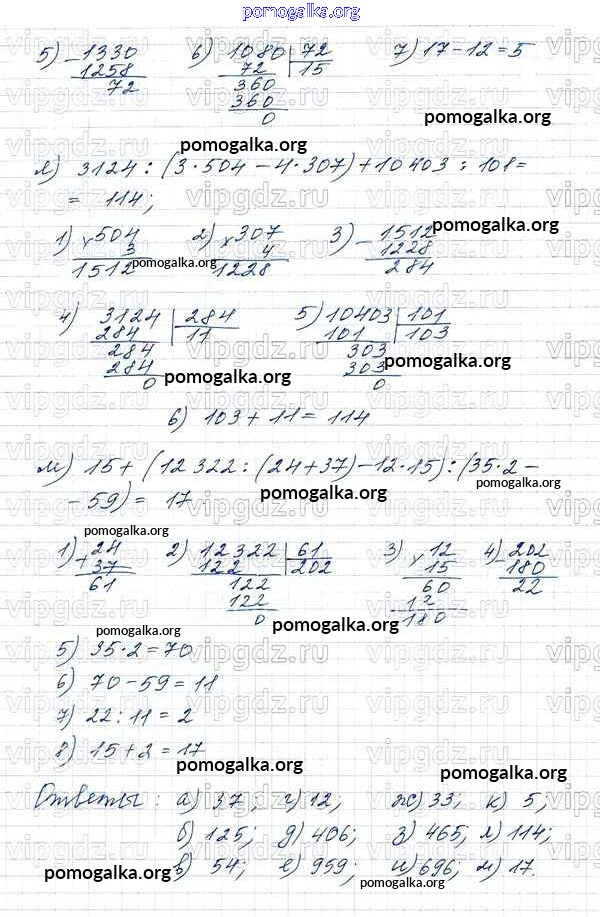 pomogalka.org
5) - 1330 6) 1080 | 72 7) 17 - 12 = 5
1258 72 15
72 360
360 pomogalka.org
0
pomogalka.org
л) 3124 : (3·504 - 4·307) + 10403 : 101 =
= 114;
1) × 504 2) × 307 3) - 1512 pomogalka.org
3 4 1228
1512 pomogalka.org 1228 284
4) 3124 | 284 5) 10403 | 101
284 11 101 103
284 303
284 303 pomogalka.org
0 pomogalka.org 0
6) 103 + 11 = 114
м) 15 + (12322 : (24 + 37) - 12·15) : (35·2 -
pomogalka.org
- 59) = 17 pomogalka.org
pomogalka.org
1) + 24 2) 12322 | 61 3) × 12 4) - 202
37 122 202 15 180
61 122 60 22
122 12
0 pomogalka.org 180
pomogalka.org
5) 35·2 = 70
6) 70 - 59 = 11
7) 22 : 11 = 2
8) 15 + 2 = 17
pomogalka.org pomogalka.org
Ответы: а) 37; г) 12; ж) 33; к) 5;
б) 125; д) 406; з) 465; л) 114;
pomogalka.org в) 54; е) 959; и) 696; м) 17.
pomogalka.org